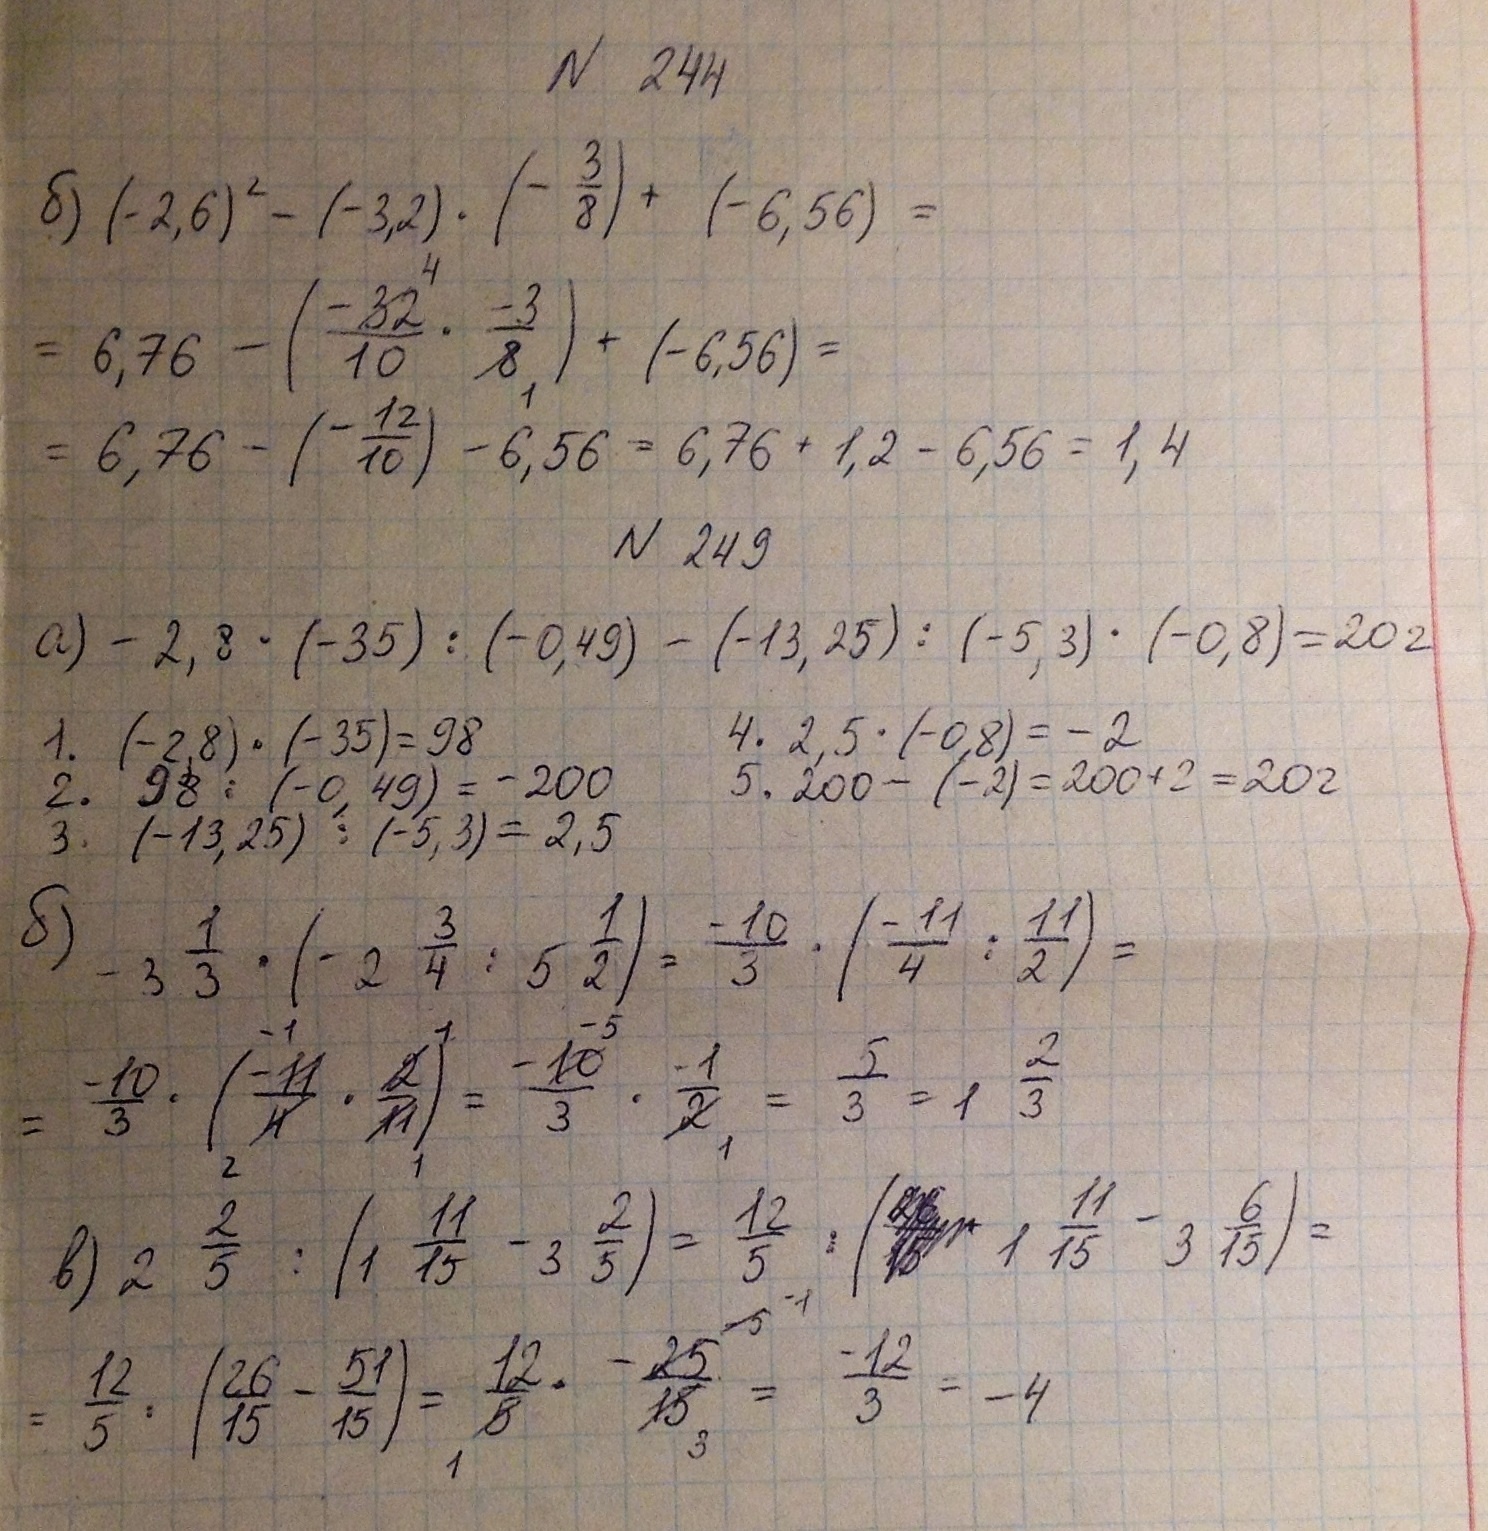 N 244
б) (-2,6)² - (-3,2) · (- 3/8) + (-6,56) =
= 6,76 - (-32/10 · -3/8) + (-6,56) =
= 6,76 - (-12/10) - 6,56 = 6,76 + 1,2 - 6,56 = 1,4
N 249
а) - 2,8 · (-35) : (-0,49) - (-13,25) : (-5,3) · (-0,8) = 202
1. (-2,8) · (-35) = 98
2. 98 : (-0,49) = -200
3. (-13,25) : (-5,3) = 2,5
4. 2,5 · (-0,8) = -2
5. 200 - (-2) = 200 + 2 = 202
б) - 3 1/3 · (- 2 3/4 : 5 1/2) = -10/3 · (-11/4 : 11/2) =
= -10/3 · (-11/4 · 2/11) = -10/3 · -1/2 = 5/3 = 1 2/3
в) 2 2/5 : (1 11/15 - 3 2/5) = 12/5 : (1 11/15 - 3 6/15) =
= 12/5 : (26/15 - 51/15) = 12/5 · -25/15 = -12/3 = -4